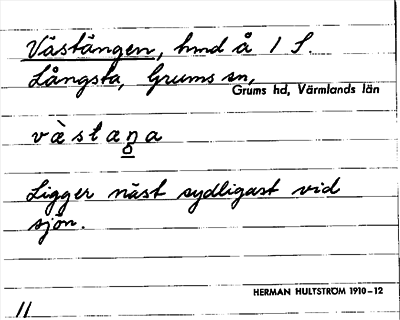 Västängen, hmd å 1 S.
Långsta, Grums sn,
Grums hd, Värmlands län
västaṉa
Ligger näst sydligast vid
sjön.
HERMAN HULTSTRÖM 1910-12
11